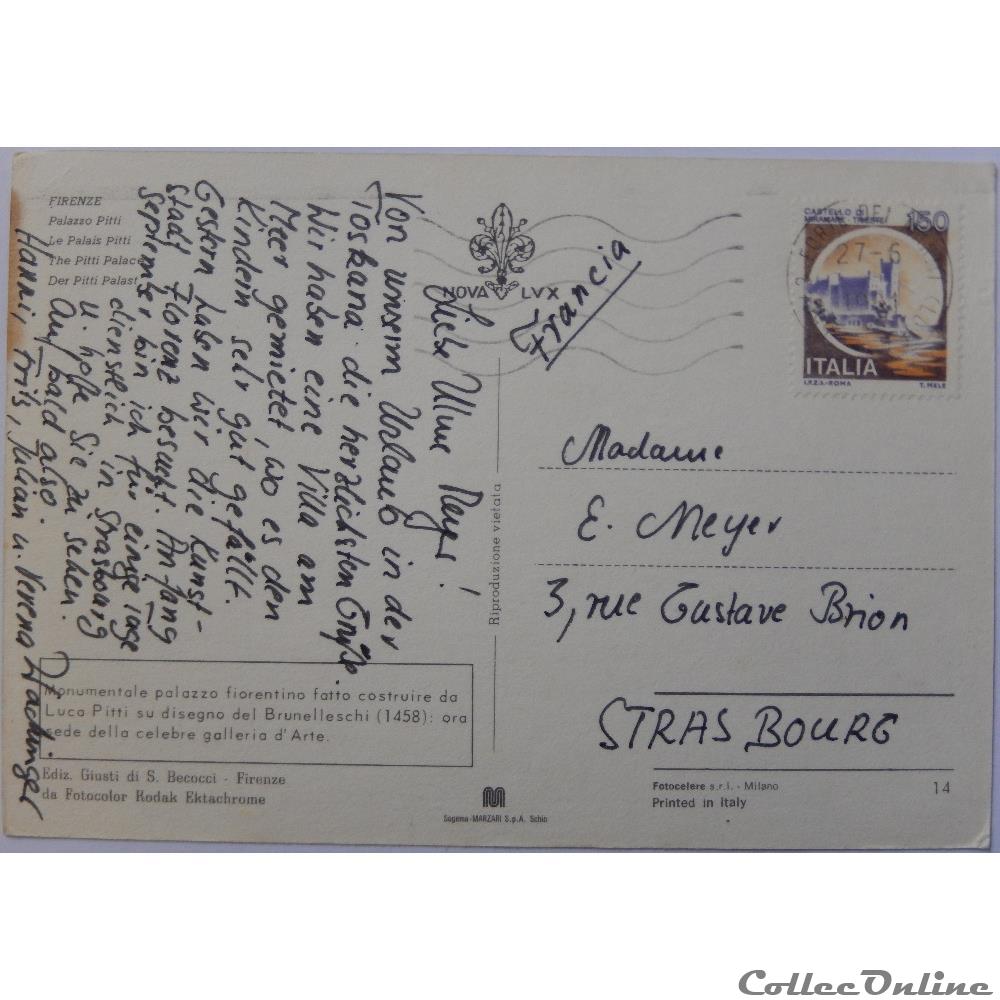 FIRENZE
Palazzo Pitti
Le Palais Pitti
The Pitti Palace
Der Pitti Palast
NOVA LVX
Francia
CASTELLO DI
MIRAMARE TRIESTE
150
27-6
ITALIA
I.P.Z.S.-ROMA T. MELE
Liebe Mme Meyer!
Von unserem Urlaub in der
Toskana die herzlichsten Grüße.
Wir haben eine Villa am
Meer gemietet, wo es den
Kindern sehr gut gefällt.
Gestern haben wir die Kunst-
stadt Florenz besucht. Anfang
September bin ich für einige Tage
dienstlich in Strasbourg
u. hoffe Sie zu sehen.
Auf bald also.
Hanni, Fritz, Julian u. Verena
Riproduzione vietata
Madame
E. Meyer
3, rue Gustave Brion
STRASBOURG
Monumentale palazzo fiorentino fatto costruire da
Luca Pitti su disegno del Brunelleschi (1458): ora
sede della celebre galleria d'Arte.
Ediz. Giusti di S. Becocci - Firenze
da Fotocolor Kodak Ektachrome
Sogema-MARZARI S.p.A. Schio
Fotocelere s.r.l. - Milano
Printed in Italy
14
CollecOnline